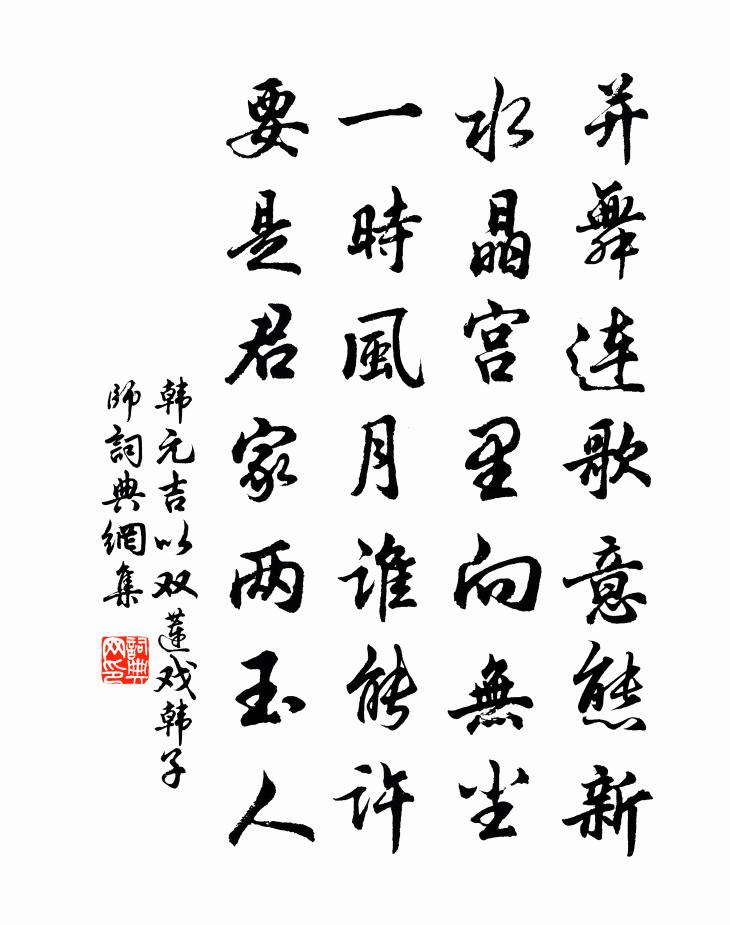 并舞连歌意態新
水晶宫里向無尘
一時風月谁能许
要是君家两玉人
韩元吉以双蓮戏韩子
师詞典網集
詞典网印